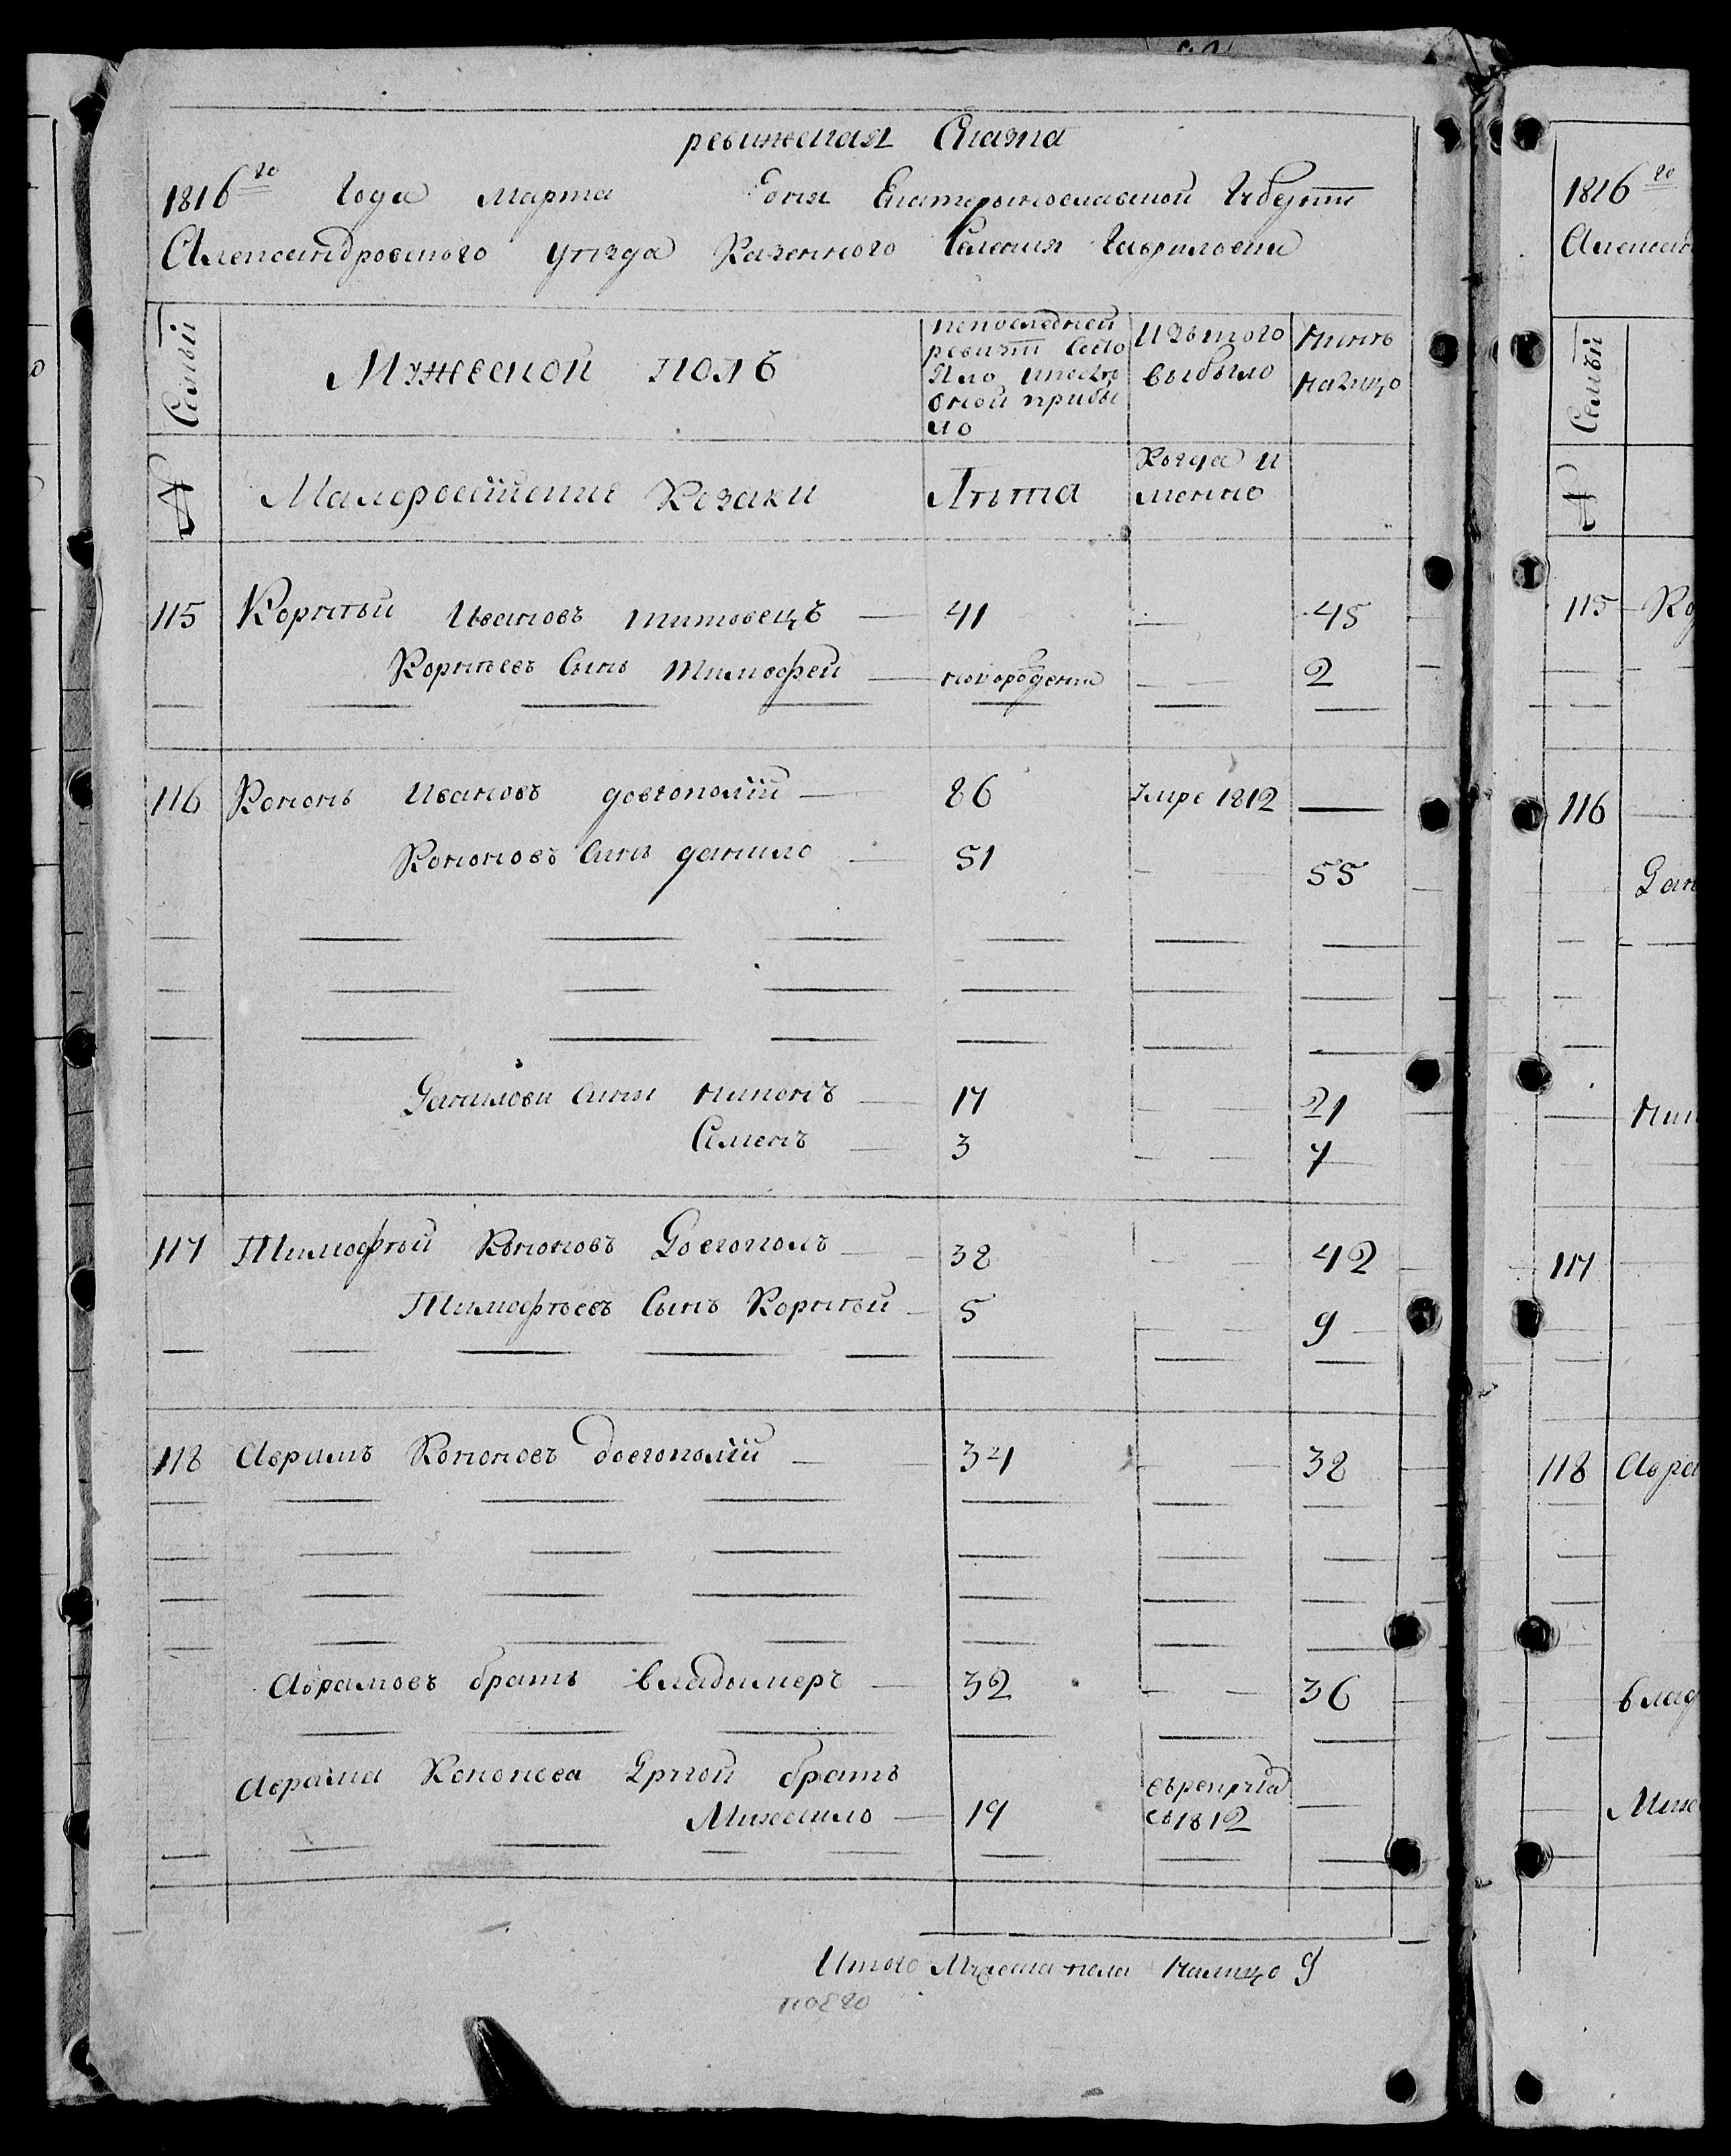 ревижская Сказка
1816го Года Марта дня Екатеринославской Губерніи
Александровского уезда Казенного Селения Гавриловки
Семьи
Мужеской полъ
Изъ того выбыло
Нинѣ налицо
№
Малоросійские Козаки
Лѣта
Когда и имянно
115 Корнѣй Ивановъ титовецъ 41 45
Корнѣевъ Синъ Тимофей новорожденни 2
116 Кононъ Ивановъ довгополій 86 умре 1812
Кононовъ Синъ данило 51 55
Данилови сини никонъ 17 21
Семенъ 3 7
117 Тимофѣй Кононовъ Довгополъ 38 42
Тимофѣевъ Сынъ Корнѣй 5 9
118 Аврамъ Кононовъ довгополій 34 38
Аврамовъ братъ владымеръ 32 36
Аврама Кононова Другой братъ
Михайло 19 въ рекруты въ 1812
Итого Мужеска пола налицо 9
1816го
Александ
Семьи
№
115 Ко
116
Дан
Ник
117
118 Авра
влад
Миха